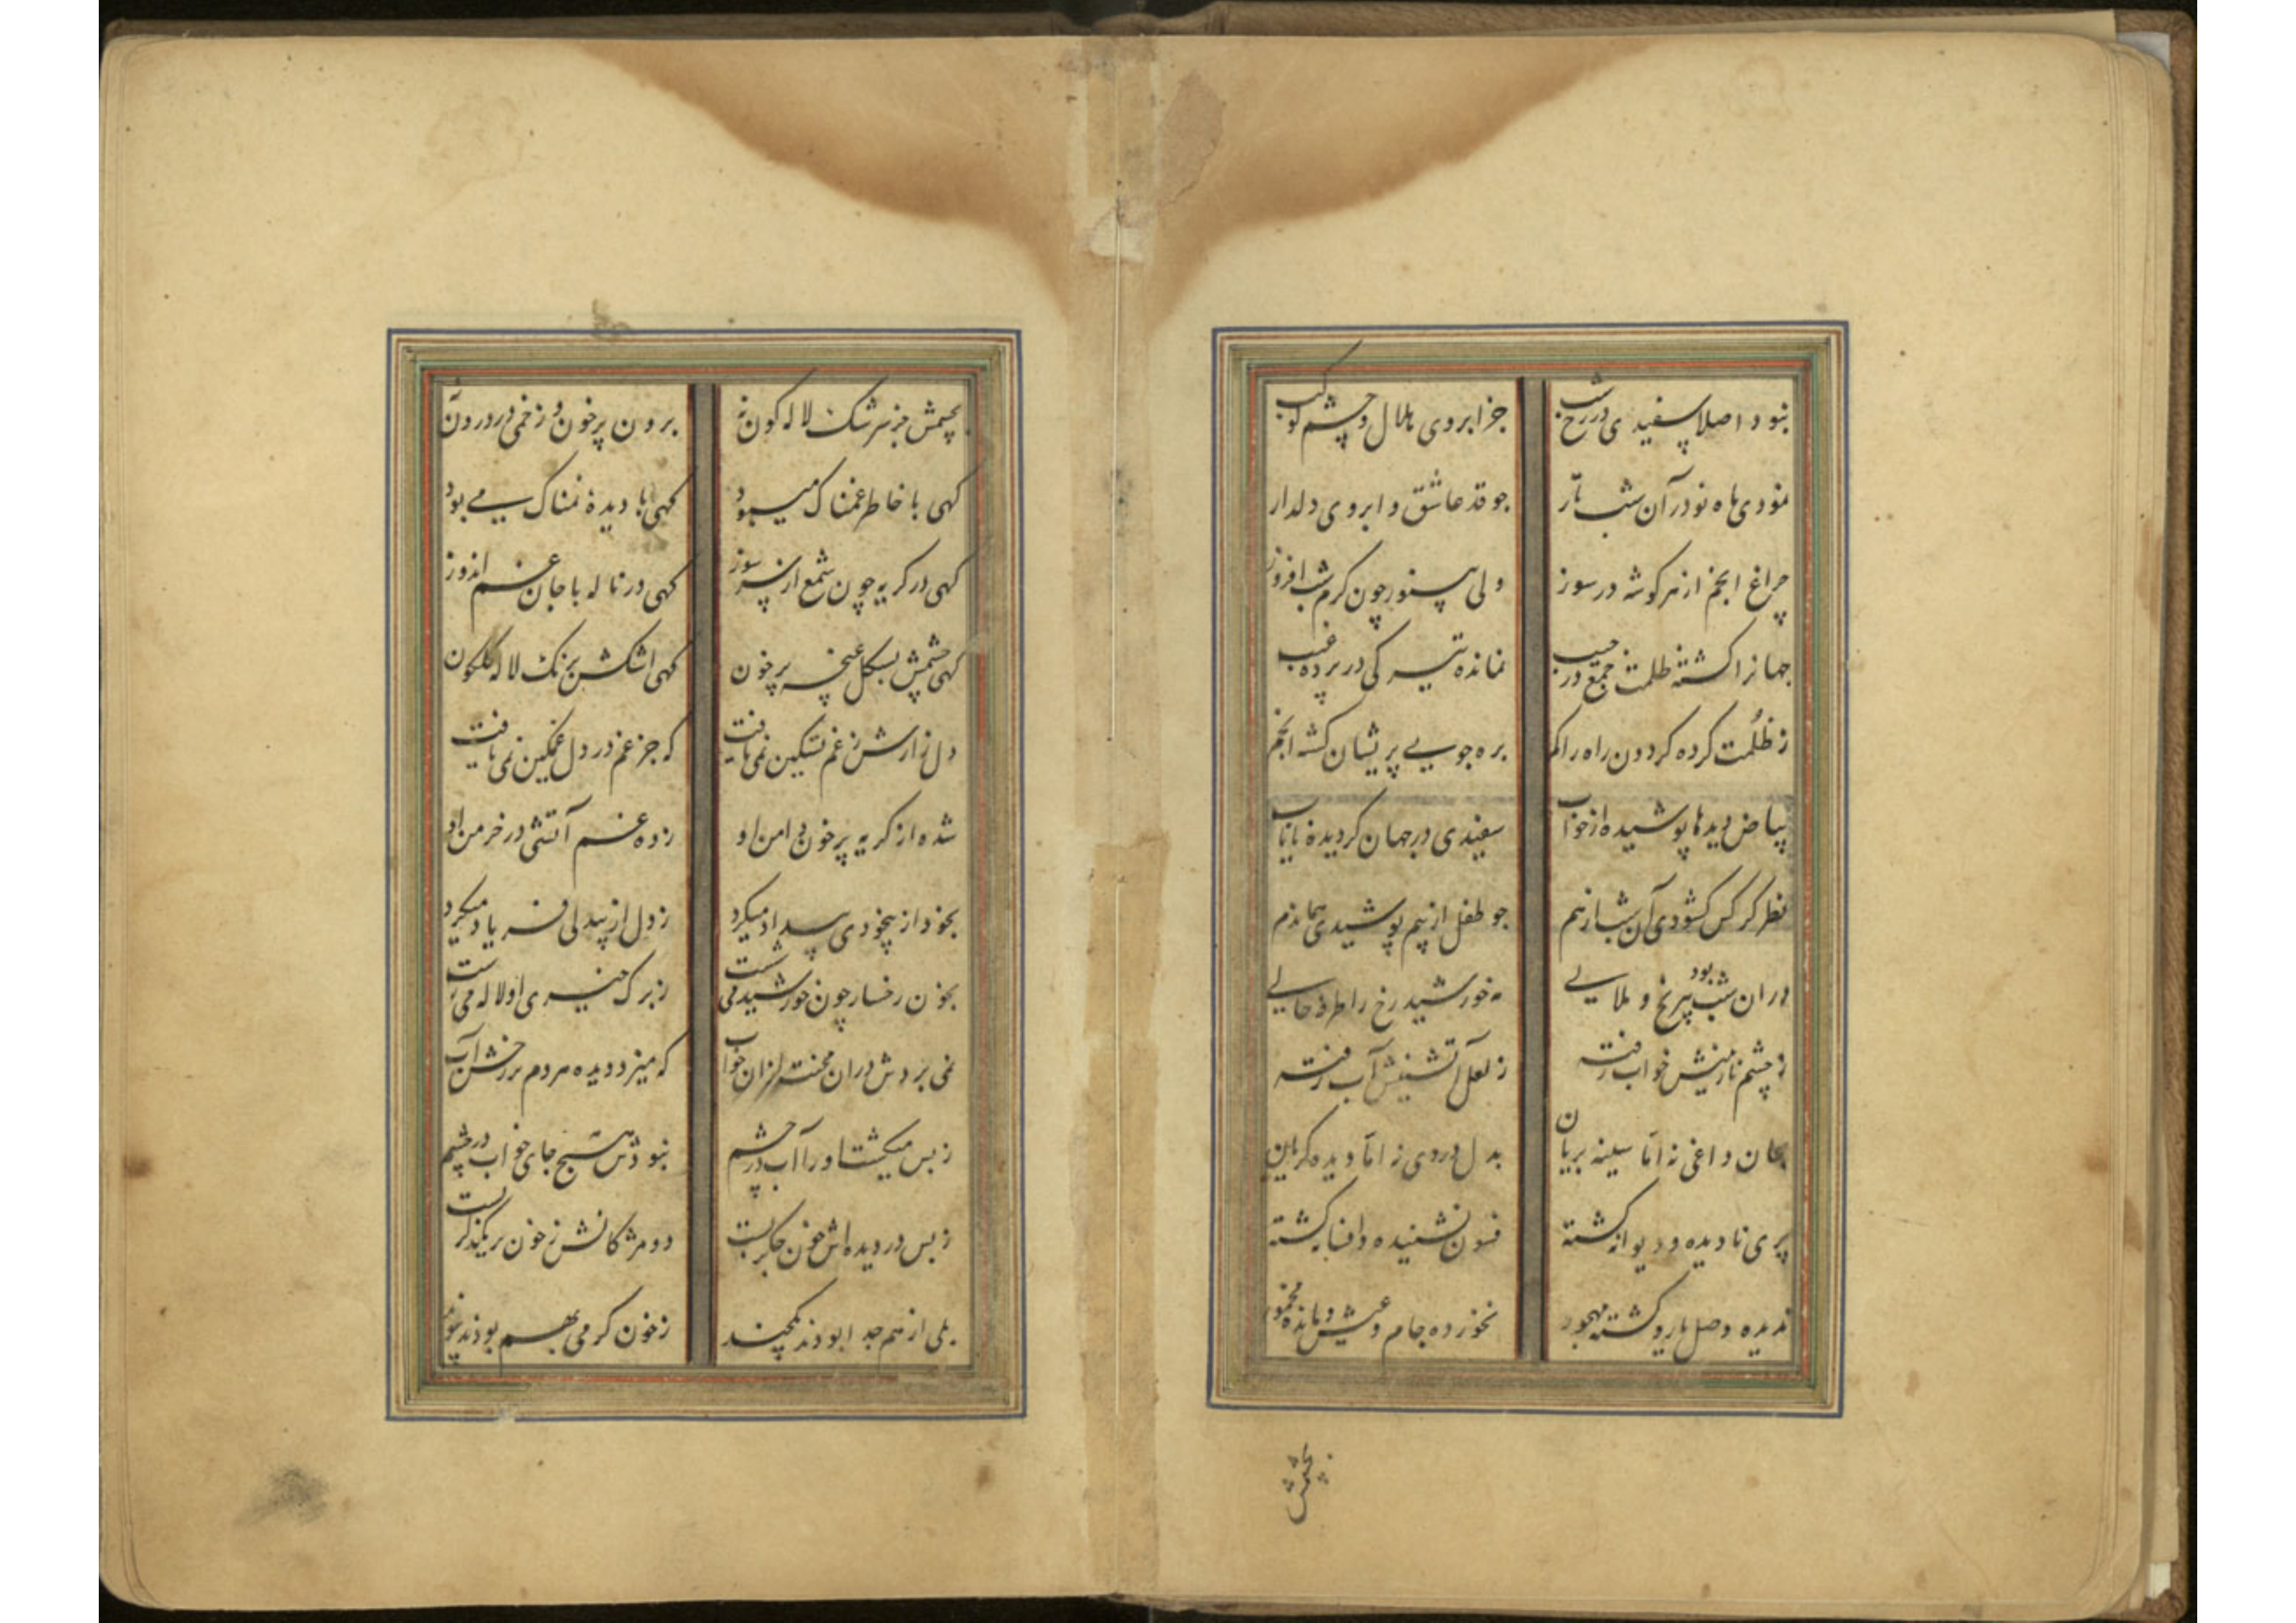 نبود اصلا سفیدی در رخ شب جز ابروی هلال و چشم کوکب
نمودی ماه نو در آن شب تار جو قد عاشق و ابروی دلدار
چراغ انجم از هر کوشه در سوز ولی بینور چون کرم شب افروز
جهانرا کشته ظلمت جمع در جیب نمانده تیرکی در پرده غیب
ز ظلمت کرده کردون راه را کم بره جویی پریشان کشته انجم
بیاض دیدها پوشیده از خواب سفیدی در جهان کردیده نایاب
نظر هر کس کشودی آن شب از هم جو طفل از بیم پوشیدی هماندم
در ان شب بود بیرنج و ملالی مه خورشید رخ را طرفه حالی
ز چشم نازنینش خواب رفته ز لعل آتشینش آب رفته
بجان داغی نه اما سینه بریان بدل دردی نه اما دیده کریان
پری نادیده و دیوانه کشته فسون نشنیده و افسانه کشته
ندیده وصل یار و کشته مهجور نخورده جام و عیش و مانده مخمور
بچشمش
بچشمش جز سرشک لاله کون نه برون پر خون و زخمی در درون نه
کهی با خاطر غمناک میبود کهی با دیدهٔ نمناک می بود
کهی در کریه چون شمع از سر سوز کهی در ناله با جان غم اندوز
کهی چشمش بشکل غنچه پر خون کهی اشکش برنک لاله کلکون
دل زارش ز غم تسکین نمی یافت که جز غم در دل غمکین نمی یافت
شده از کریه پر خون دامن او زده غم آتشی در خرمن او
بخود از بیخودی بیداد میکرد ز دل از بیدلی فریاد میکرد
بخون رخسار چون خورشید می شست ز برک خیری او لاله می رست
نمی بردش در ان محنت خواب که میزد دیده مردم بر رخش آب
ز بس میکشت او را آب در چشم نبودش هیچ جای خواب در چشم
ز بس در دیده اش خون جکر بست دو مژکانش ز خون بر یکدکر بست
بلی از هم جدا بودند یکچند ز خون کرمی بهم بودند پیوند